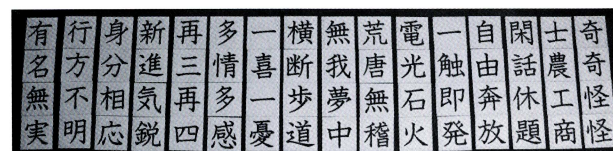 奇奇怪怪
士農工商
閑話休題
自由奔放
一触即発
電光石火
荒唐無稽
無我夢中
横断歩道
一喜一憂
多情多感
再三再四
新進気鋭
身分相応
行方不明
有名無実